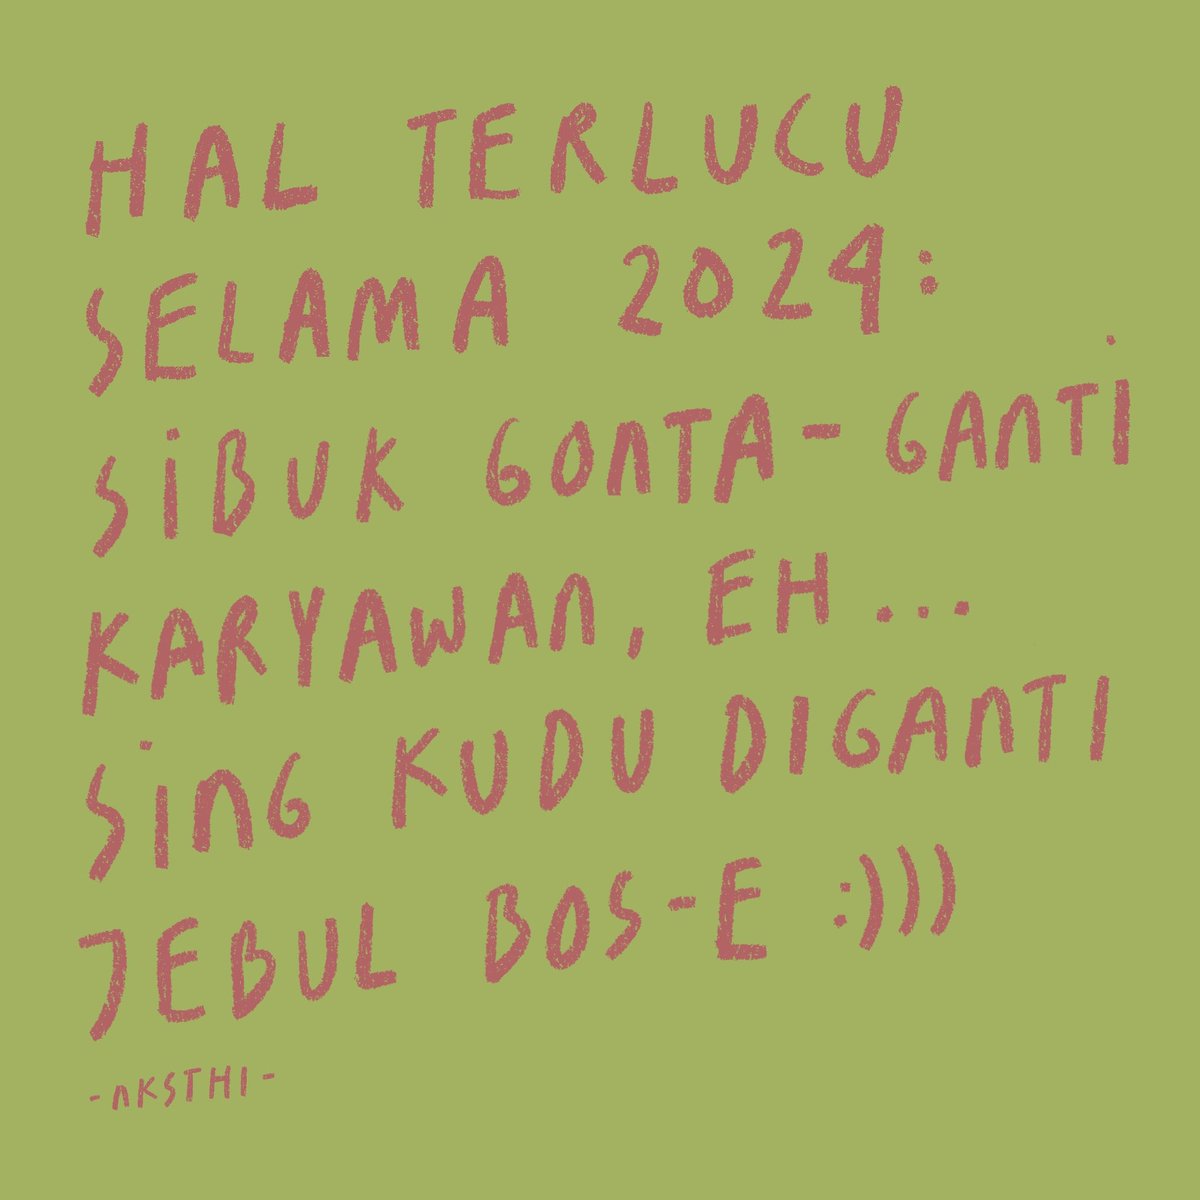 HAL TERLUCU
SELAMA 2024:
SIBUK GONTA-GANTI
KARYAWAN, EH...
SING KUDU DIGANTI
JEBUL BOS-E :)))
-NKSTHI-